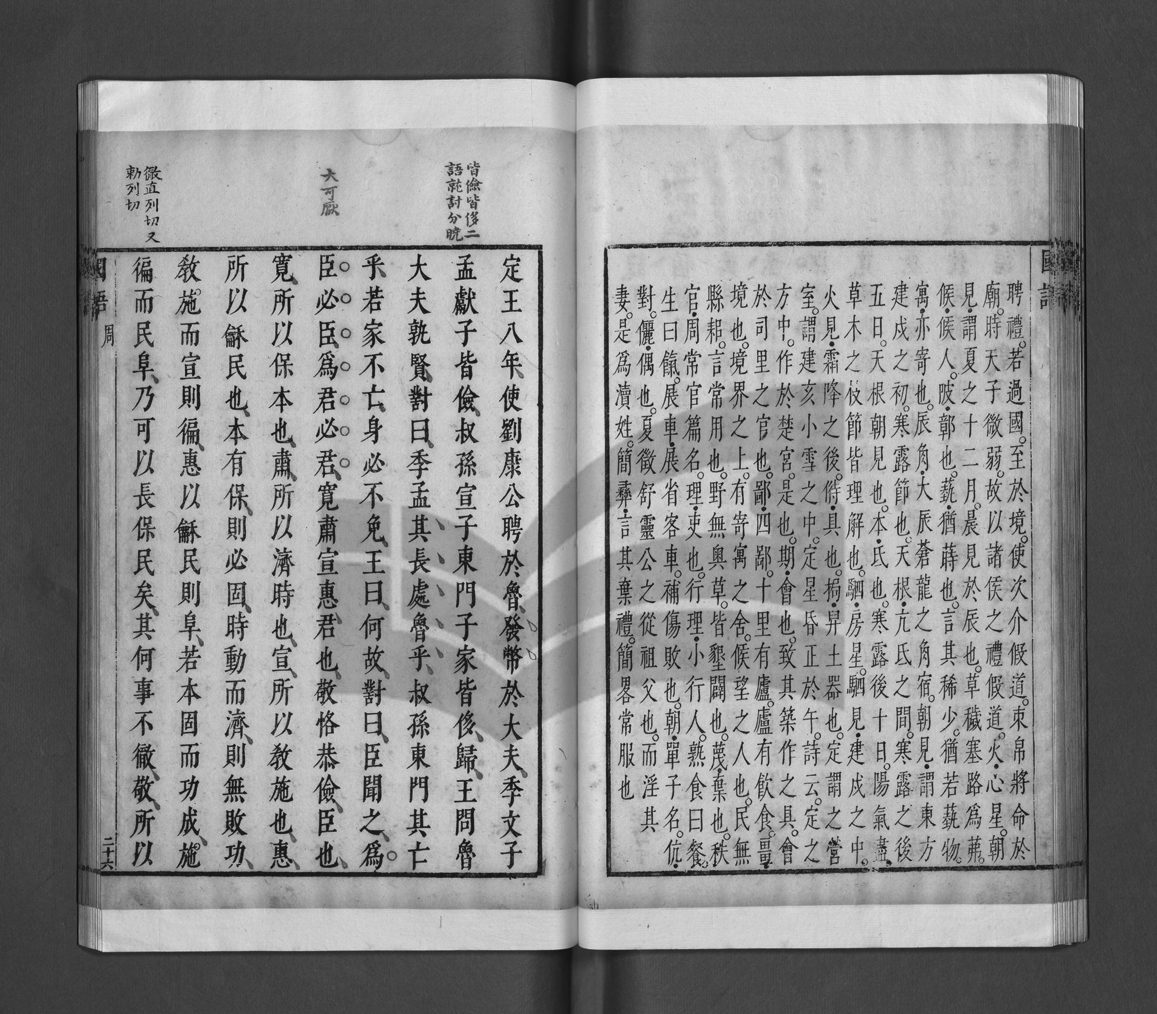 聘禮。若過國。至於境。使次介假道。束帛將命於
廟。時天子微弱。故以諸侯之禮假道。火心星。朝
見謂夏之十二月。晨見於辰也。草穢塞路爲茀。
候候人。陂鄣也。蓺猶蒔也。言其稀少。猶若蓺物。
寓亦寄也。辰角大辰蒼龍之角宿。朝見謂東方
建戍之初。寒露節也。天根亢氐之間。寒露之後
五日。天根朝見也。本氐也。寒露後十日。陽氣盡
草木之枝節皆理解也。駟房星。駟見建戍之中。
火見霜降之後。偫具也。挶舁土器也。定謂之營
室。謂建亥小雪之中。定星昏正於午。詩云。定之
方中。作於楚宮。是也。期會也。致其築作之具會
於司里之官也。鄙四鄙。十里有廬。廬有飲食。畺
境也。境界之上。有寄寓之舍。候望之人也。民無
縣耜。言常用也。野無奧草。皆墾闢也。蔑棄也。秩
官周常官篇名。理吏也。行理小行人。熟食曰餐。
生曰餼。展車展省客車。補傷敗也。朝單子名。伉
對。儷偶也。夏徵舒靈公之從祖父也。而淫其
妻。是爲瀆姓。簡彝言其棄禮。簡畧常服也
國語
皆儉皆侈二
語說討分曉
大可厭
徹直列切又
勅列切
定王八年使劉康公聘於魯發幣於大夫季文子
孟獻子皆儉叔孫宣子東門子家皆侈歸王問魯
大夫孰賢對曰季孟其長處魯乎叔孫東門其亡
乎若家不亡身必不免王曰何故對曰臣聞之爲
臣必臣爲君必君寬肅宣惠君也敬恪恭儉臣也
寬所以保本也肅所以濟時也宣所以教施也惠
所以龢民也本有保則必固時動而濟則無敗功
教施而宣則徧惠以龢民則阜若本固而功成施
徧而民阜乃可以長保民矣其何事不徹敬所以
國語 周 二十六